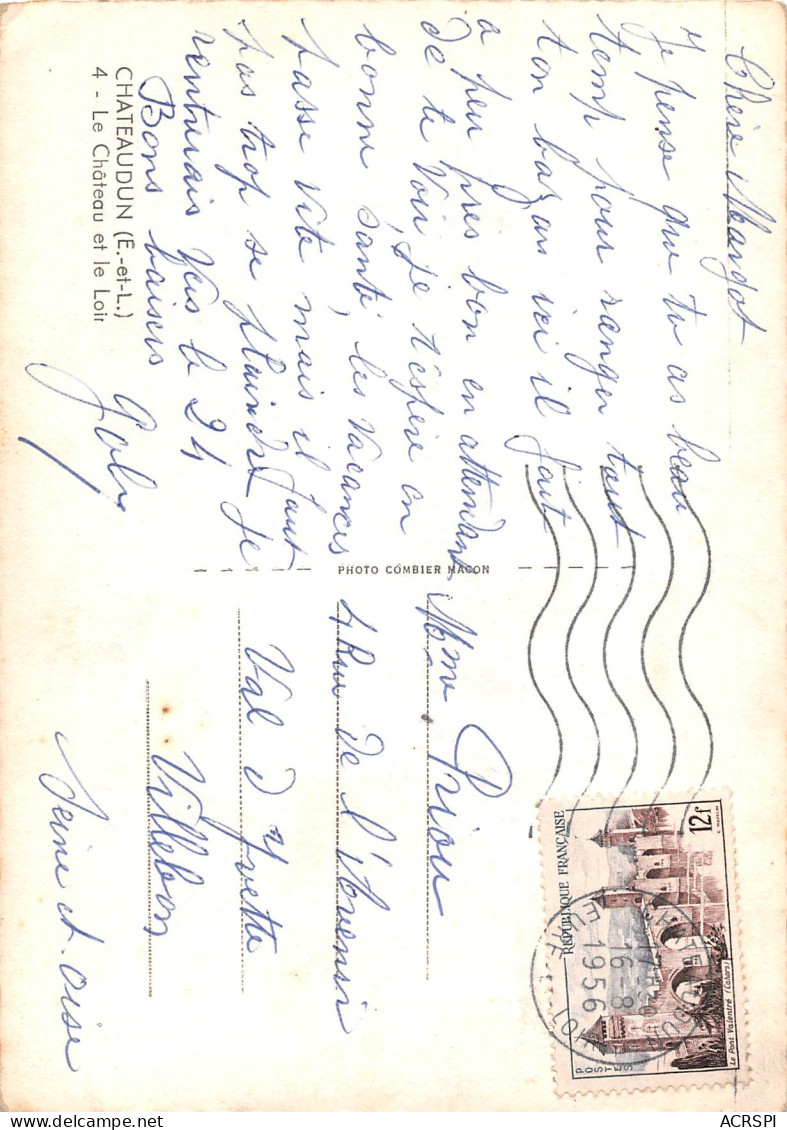 Chère Margot
Je pense que tu as beau
temp pour ranger tout
ton bazar ici il fait
a peu près bon en attendant
de te voir, je t'espère en
bonne santé, les vacances
passe vite mais il faut
pas trop se plaindre je
rentrerais vers le 24
Bons baisers
Gaby
CHATEAUDUN (E.-et-L.)
4 - Le Château et le Loir
PHOTO COMBIER MACON
Mme Priou
4 Rue de l'Avenir
Val d'Yvette
Villebon
Seine et Oise
REPUBLIQUE FRANÇAISE
12f
POSTES
Le Pont Valentré (Cahors)
17H30
16-8
1956
EURE
ACRSPI